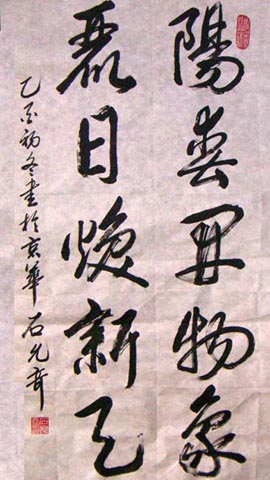 陽春開物象
麗日煥新天
乙酉初冬書於京華石允奇